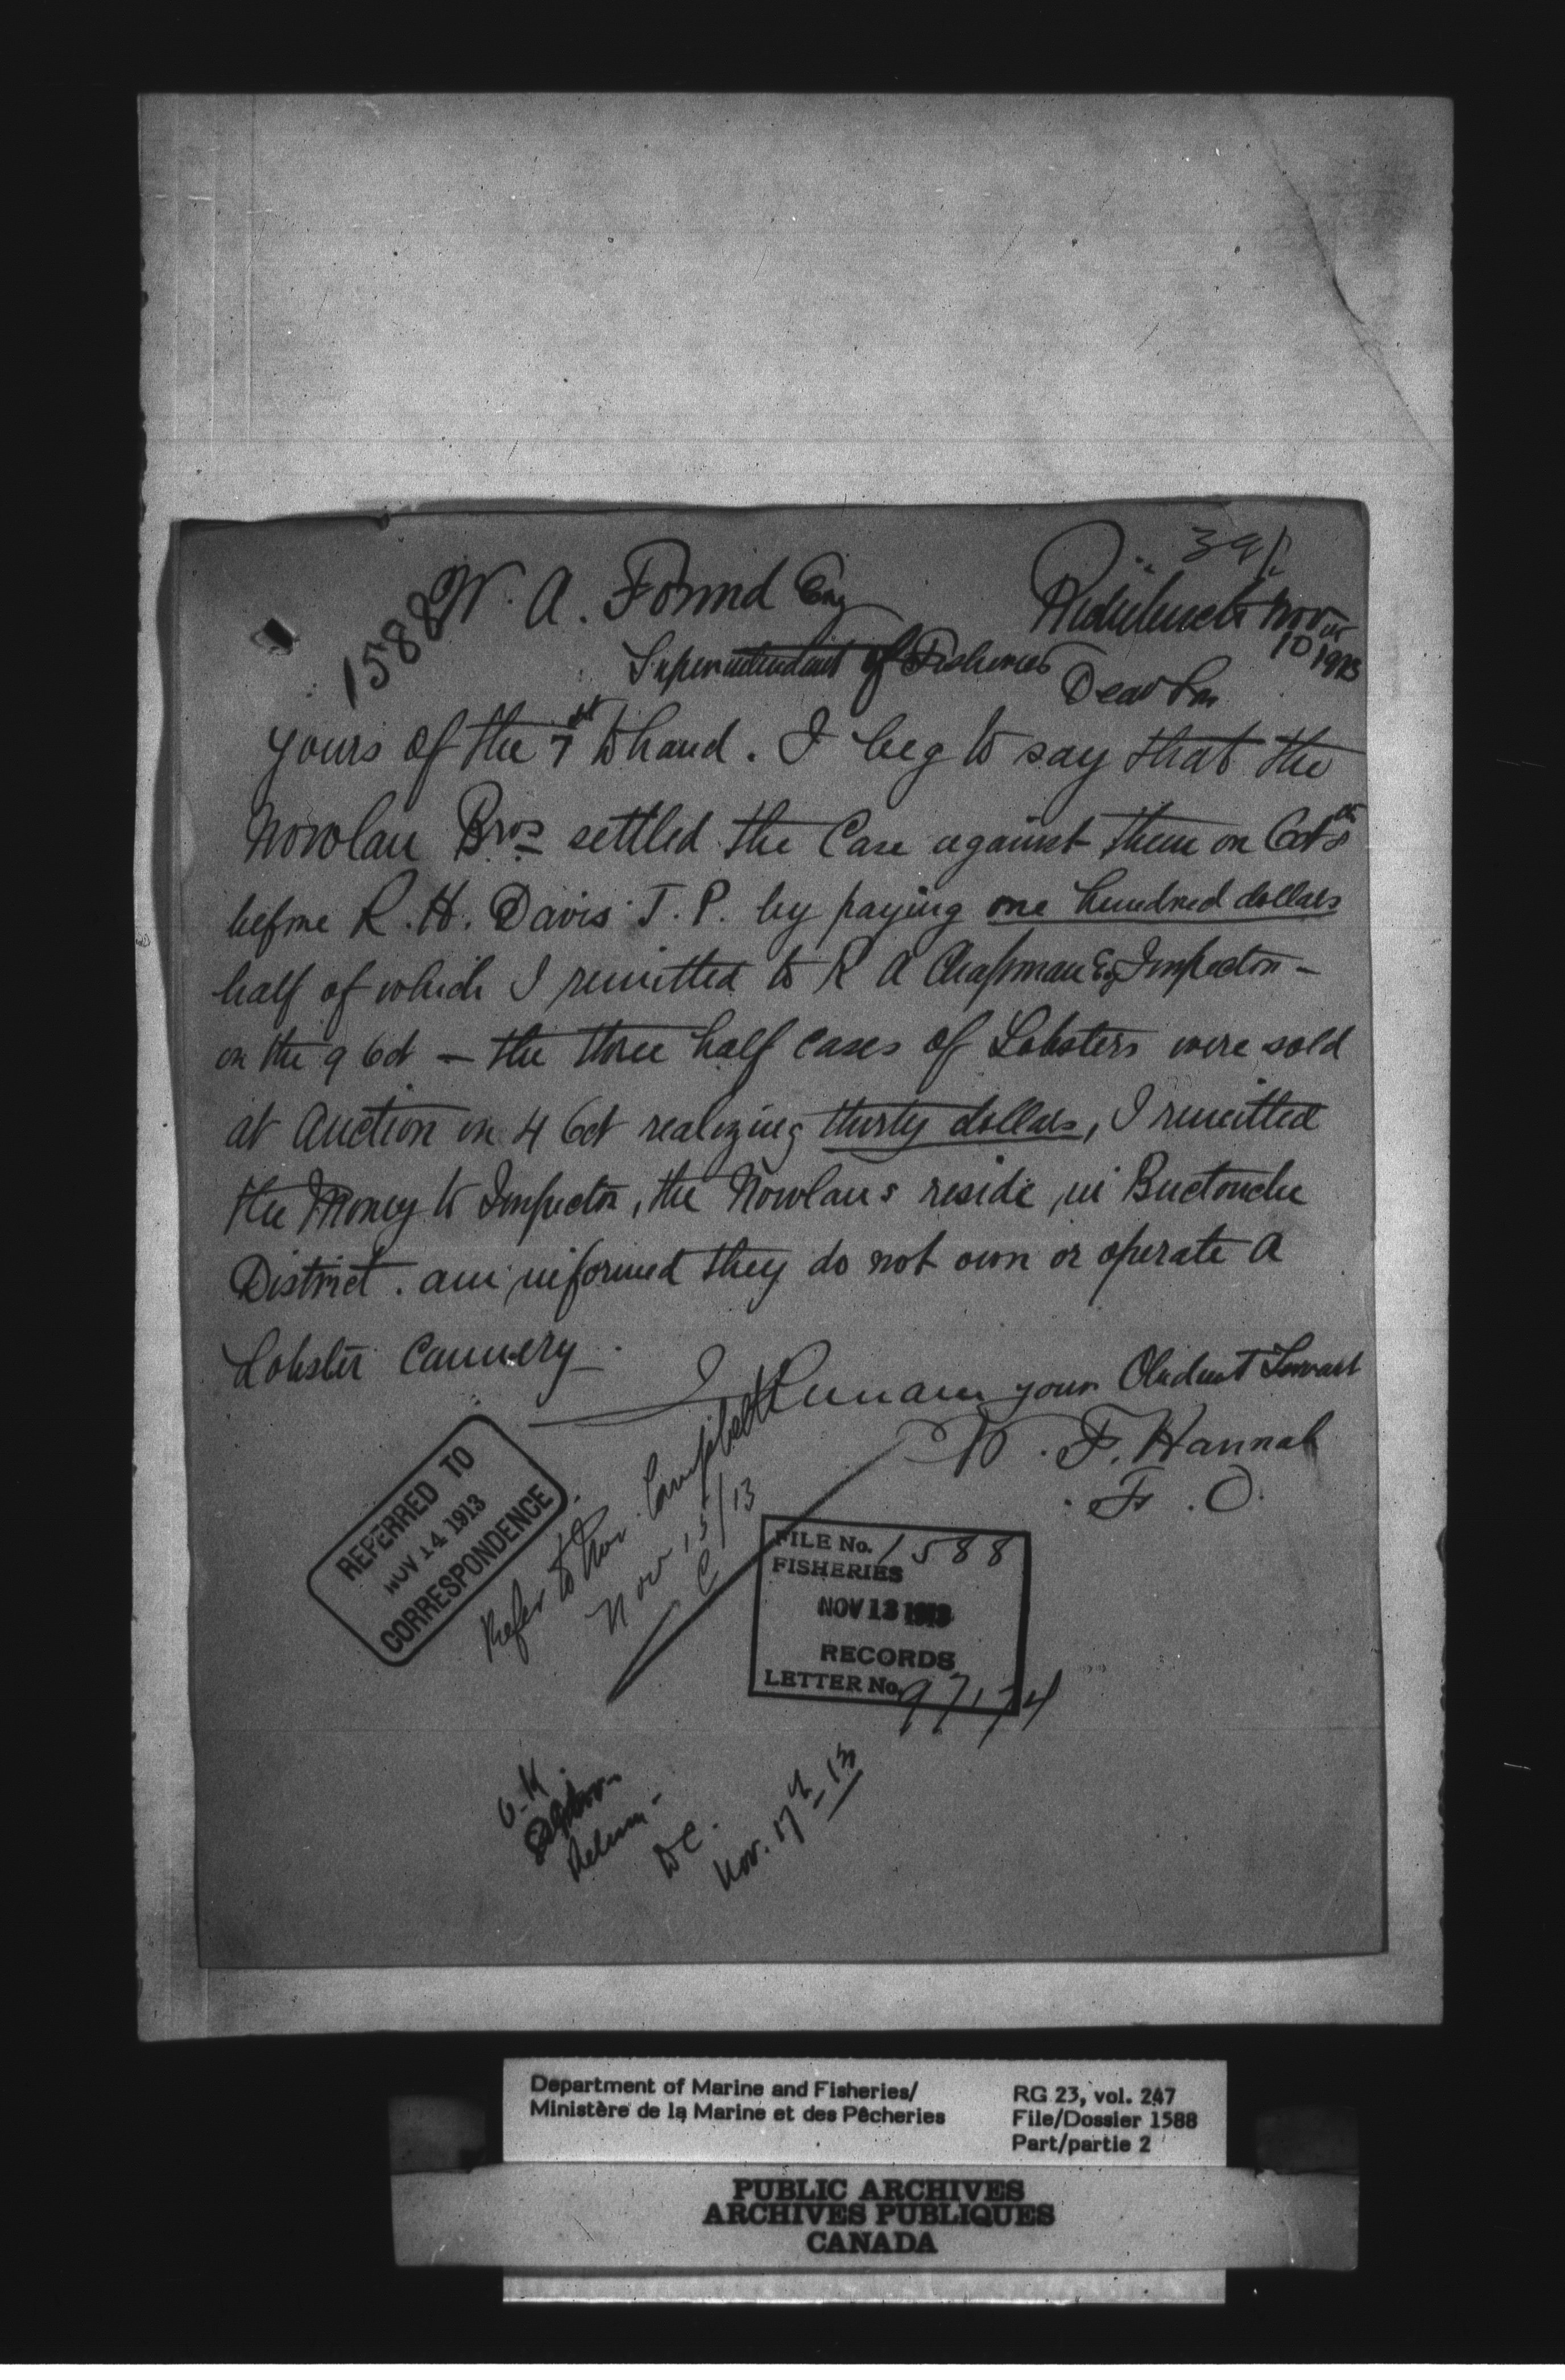 391
1588
W. A. Found Esq
Richibucto Nov
10 1913
Superintendent of Fisheries
Dear Sir
yours of the 7th to hand. I beg to say that the
Nowlan Bros settled the Case against them on Oct 8th
before R. H. Davis J. P. by paying one hundred dollars
half of which I remitted to R A Chapman Esq Inspector -
on the 9 Oct - the three half cases of Lobsters were sold
at Auction on 4 Oct realizing thirty dollars, I remitted
the Money to Inspector, the Nowlans reside in Buctouche
District. am informed they do not own or operate a
Lobster Cannery.
I Remain your Obedient Servant
W. F. Hannah
F. O.
REFERRED TO
NOV 14 1913
CORRESPONDENCE
Refer to Campbell
Nov 15/13
C
FILE No. 1588
FISHERIES
NOV 13 1913
RECORDS
LETTER No. 97174
O-K
Return -
DC.
Nov. 17th 13
Department of Marine and Fisheries/
Ministère de la Marine et des Pêcheries
RG 23, vol. 247
File/Dossier 1588
Part/partie 2
PUBLIC ARCHIVES
ARCHIVES PUBLIQUES
CANADA